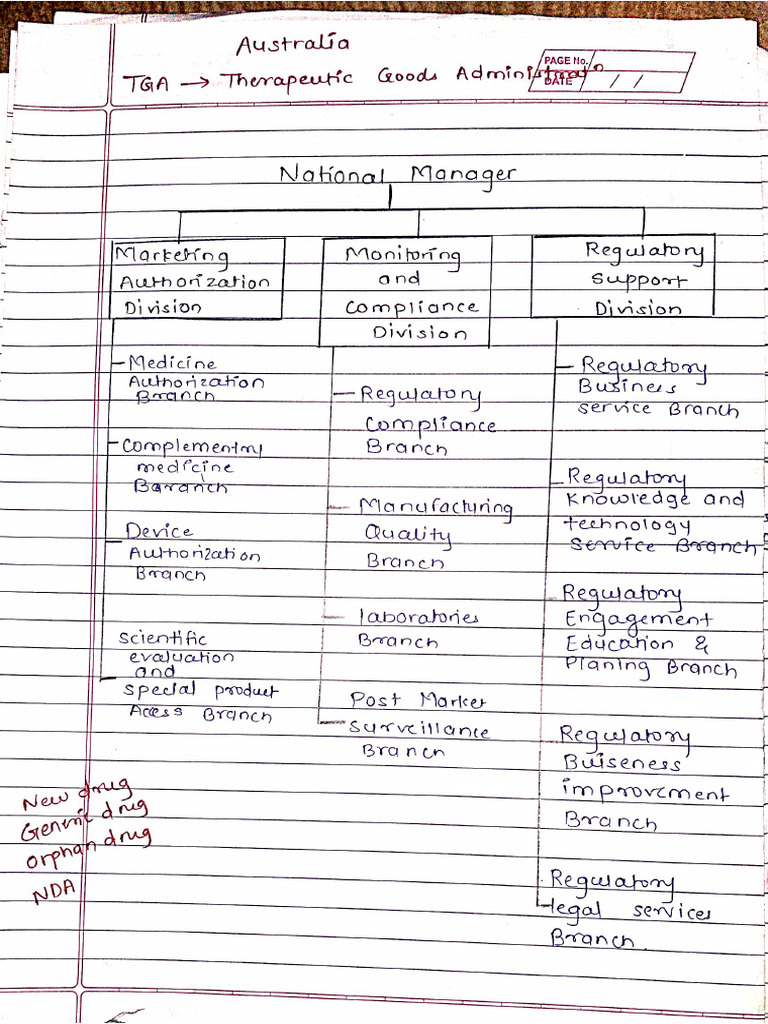 Australia
PAGE No.
DATE / /
TGA → Therapeutic Goods Administratn
National Manager
Marketing
Authorization
Division
Medicine
Authorization
Branch
Complementry
medicine
Baranch
Device
Authorization
Branch
Scientific
evaluation
and
special product
Access Branch
Monitoring
and
Compliance
Division
Regulatory
Compliance
Branch
Manufacturing
Quality
Branch
laboratories
Branch
Post Market
Surveillance
Branch
Regulatory
Support
Division
Regulatory
Business
service Branch
Regulatory
Knowledge and
technology
Service Branch
Regulatory
Engagement
Education &
Planing Branch
Regulatory
Buiseness
improvement
Branch
Regulatory
legal services
Branch
New drug
Generic drug
Orphan drug
NDA